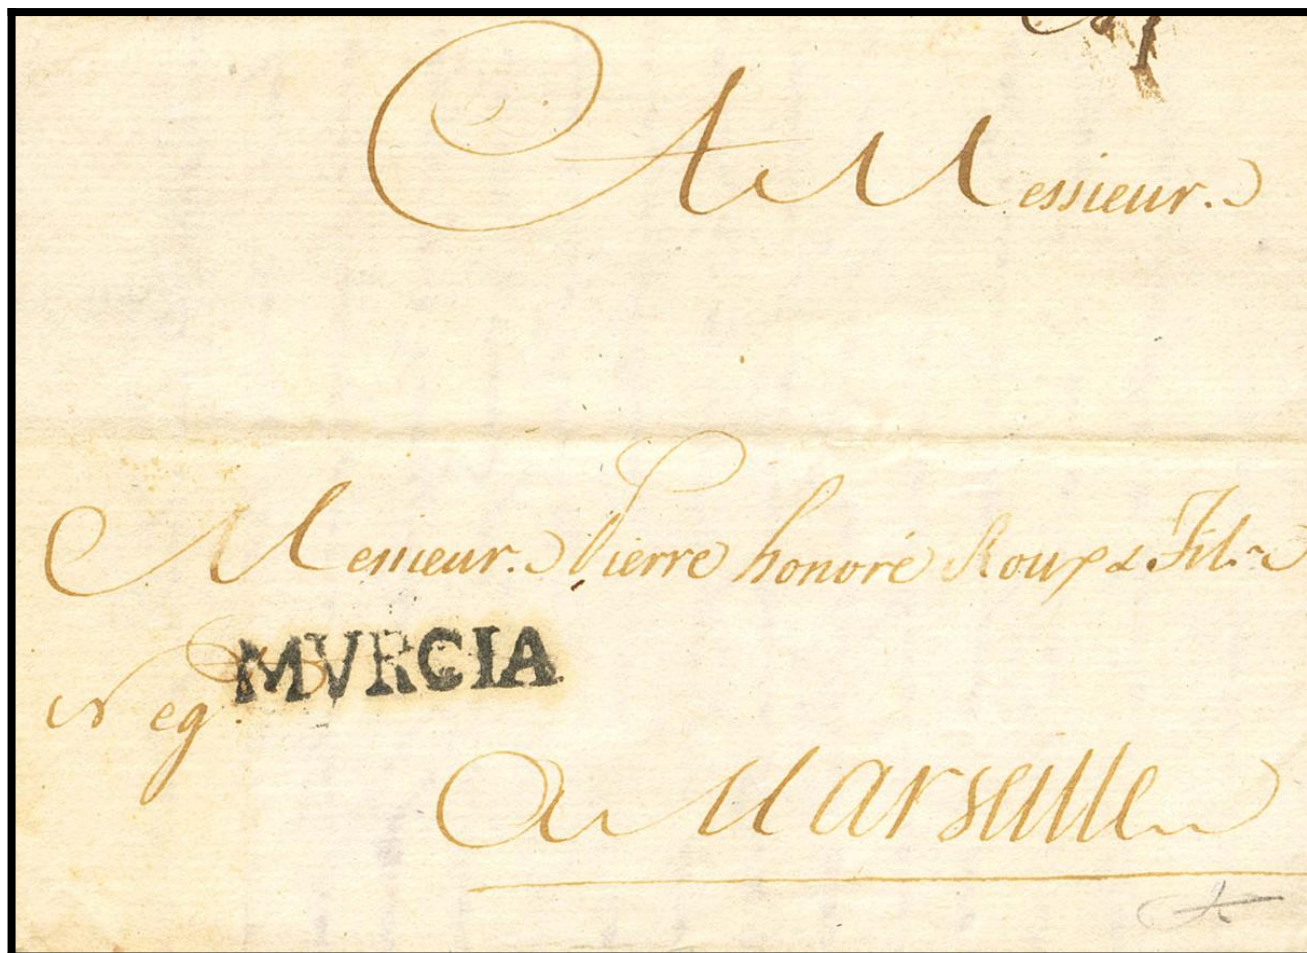 A Messieurs
Messieurs Pierre honoré Roux & Fils
Neg.
MVRCIA
a Marseille